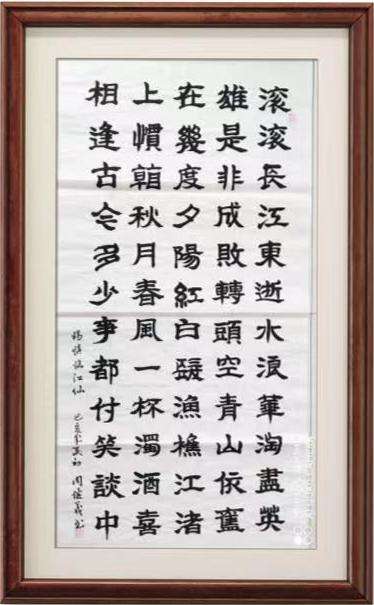 滚滚長江東逝水浪華淘盡英
雄是非成敗轉頭空青山依舊
在幾度夕陽紅白髮漁樵江渚
上慣看秋月春風一杯濁酒喜
相逢古今多少事都付笑談中
楊慎臨江仙 己亥年